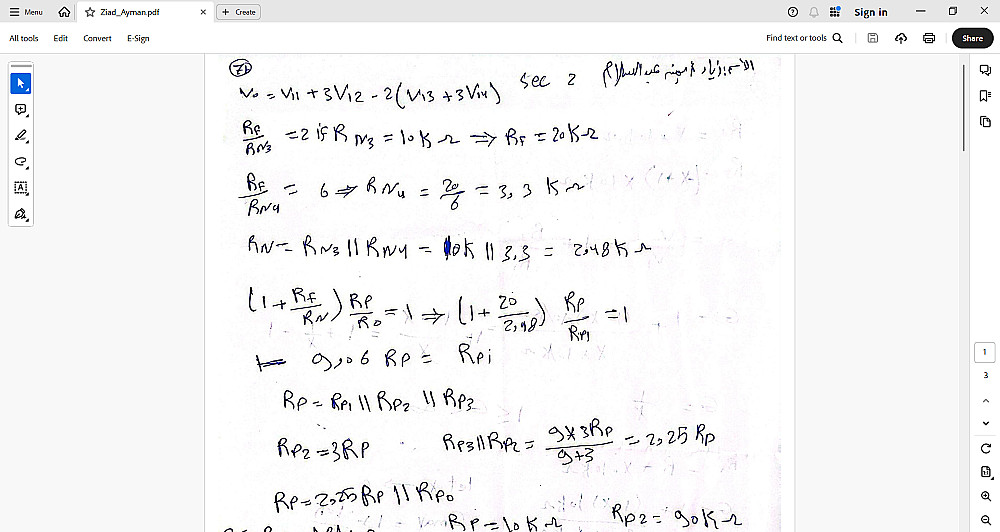 Menu
Ziad_Ayman.pdf
Create
Sign in
All tools
Edit
Convert
E-Sign
Find text or tools
Share
71
Vo = Vi1 + 3Vi2 - 2(Vi3 + 3Vi4)
Sec 2
RF/RN3 = 2 if RN3 = 10K Ω ⇒ RF = 20K Ω
RF/RN4 = 6 ⇒ RN4 = 20/6 = 3,3 K Ω
RN = RN3 || RN4 = 10K || 3.3 = 2,48K Ω
(1 + RF/RN) RP/Ro = 1 ⇒ (1 + 20/2,48) RP/RP1 = 1
9,06 RP = RPi
RP = RP1 || RP2 || RP3
RP2 = 3RP
RP3 || RP2 = 9×3RP/9+3 = 2,25 RP
RP = 2,25RP || RPo
RP = 10K Ω
RP2 = 90K Ω
1
3